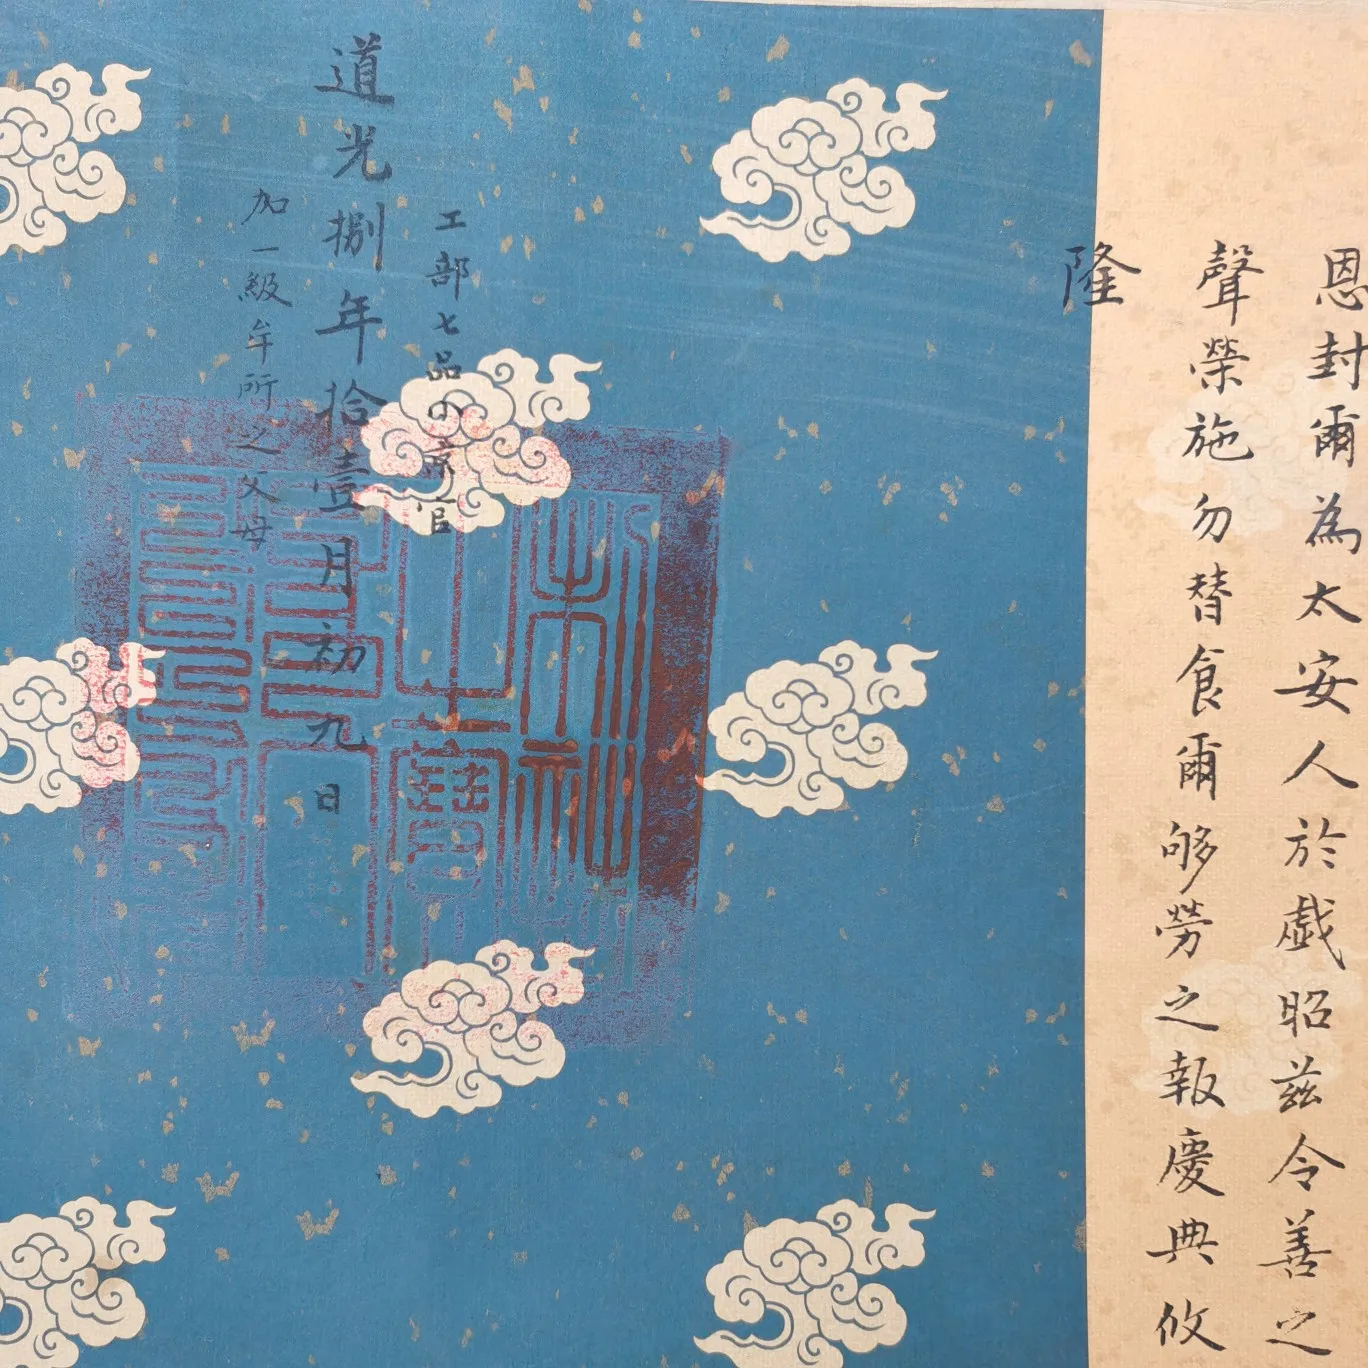 恩封爾為太安人於戯昭茲令善之
聲榮施勿替食爾够勞之報慶典攸
隆
工部七品小京官
道光捌年拾壹月初九日
加一級牟所之父母